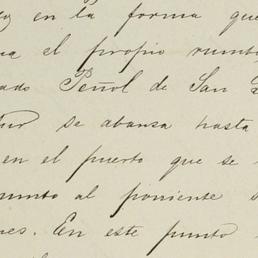 en la forma que
el propio rumb
ado Peñol de San
Sur se abansa hasta
en el puerto que se
punto al poniente
nes. En este punto